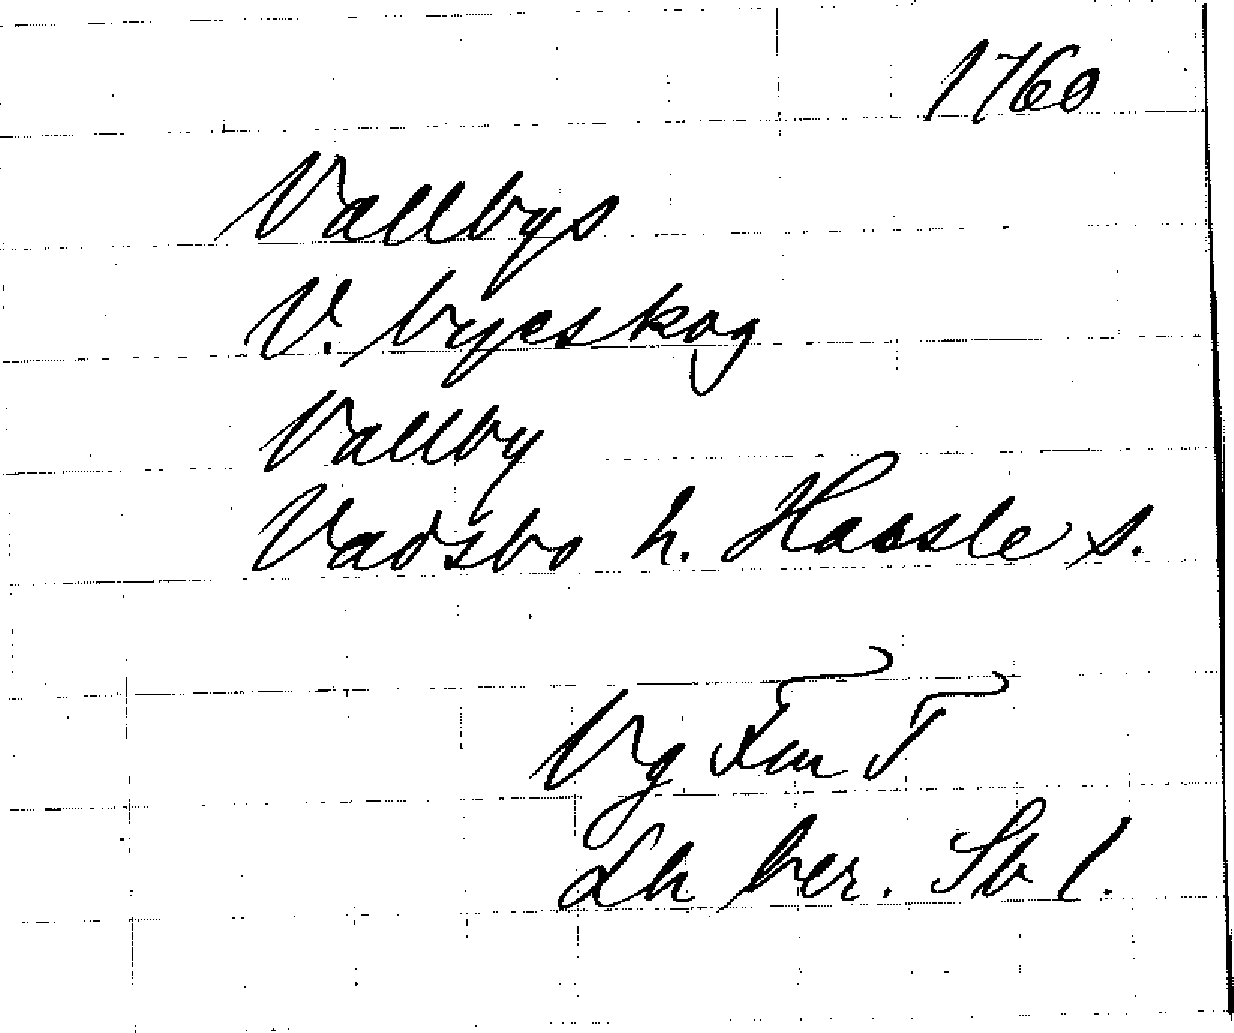 1760
Vallbys
V. byeskog
Vallby
Vadsbo h. Hassle s.
Vg Fm T
Lh ber. Sb 1.